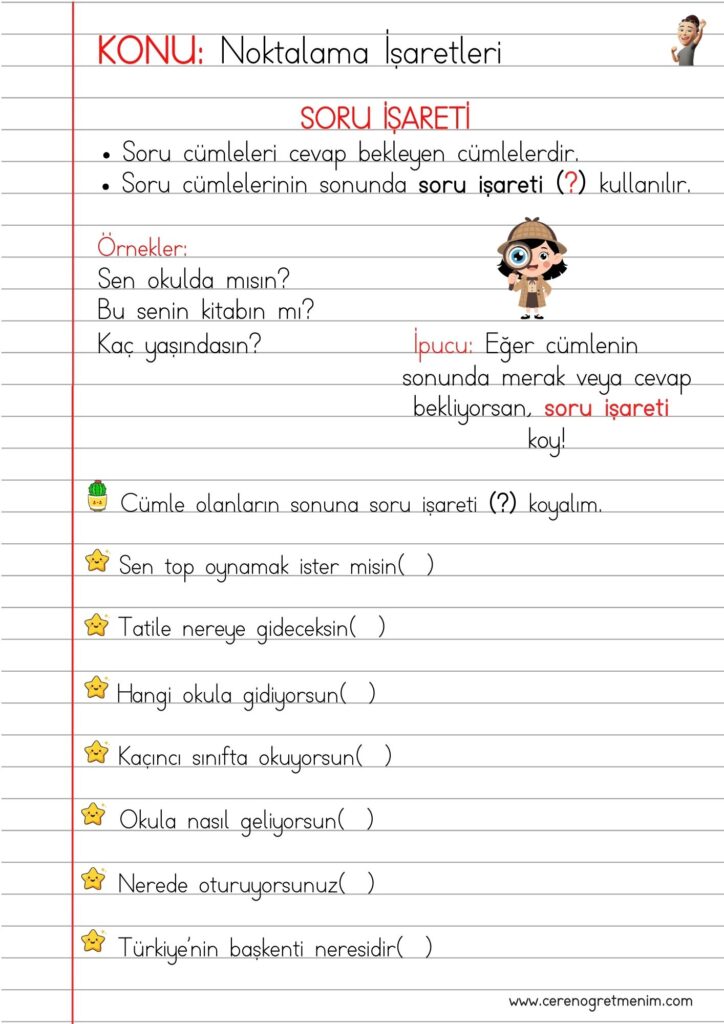 KONU: Noktalama İşaretleri
SORU İŞARETİ
• Soru cümleleri cevap bekleyen cümlelerdir.
• Soru cümlelerinin sonunda soru işareti (?) kullanılır.
Örnekler:
Sen okulda mısın?
Bu senin kitabın mı?
Kaç yaşındasın?
İpucu: Eğer cümlenin
sonunda merak veya cevap
bekliyorsan, soru işareti
koy!
Cümle olanların sonuna soru işareti (?) koyalım.
Sen top oynamak ister misin( )
Tatile nereye gideceksin( )
Hangi okula gidiyorsun( )
Kaçıncı sınıfta okuyorsun( )
Okula nasıl geliyorsun( )
Nerede oturuyorsunuz( )
Türkiye'nin başkenti neresidir( )
www.cerenogretmenim.com